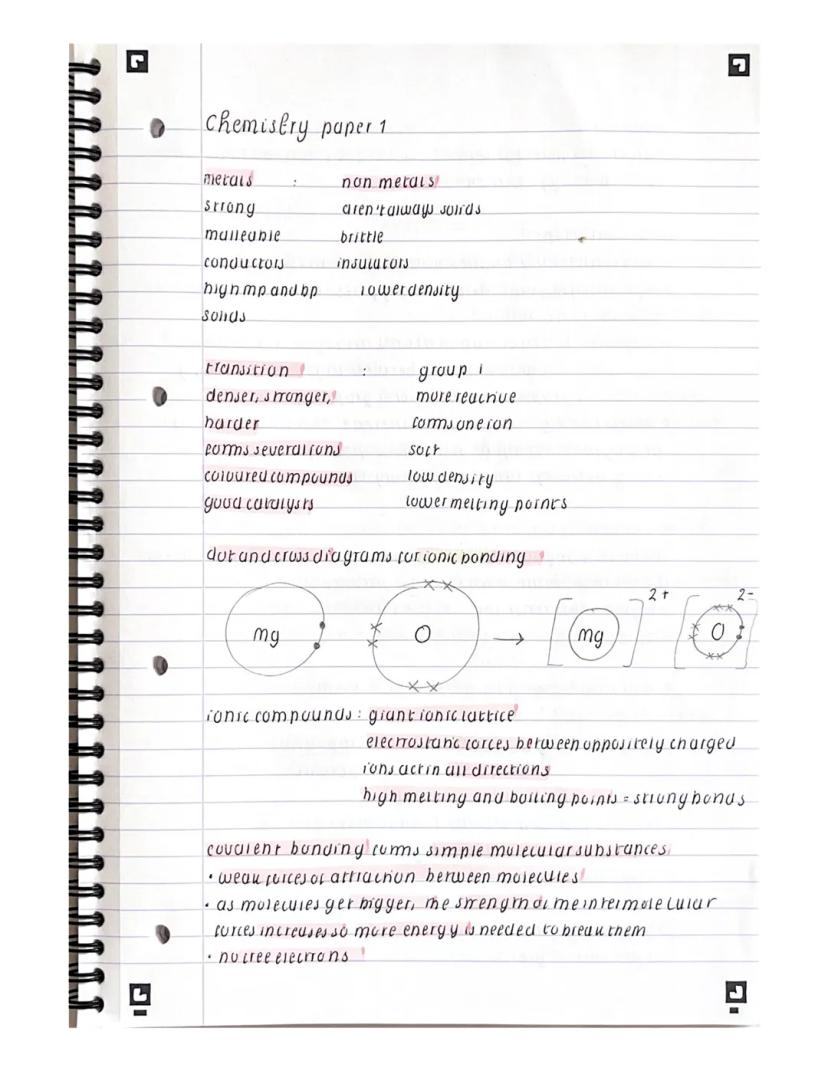 Chemistry paper 1
metals : non metals
strong aren't always solids
malleable brittle
conductors insulators
high mp and bp lower density
solids
transition : group 1
denser, stronger, more reactive
harder forms one ion
forms several ions soft
coloured compounds low density
good catalysts lower melting points
dot and cross diagrams for ionic bonding
mg O → [mg]2+ [O]2-
ionic compounds : giant ionic lattice
electrostatic forces between oppositely charged
ions act in all directions
high melting and boiling points = strong bonds
covalent bonding forms simple molecular substances
• weak forces of attraction between molecules
• as molecules get bigger, the strength of the intermolecular
forces increases so more energy is needed to break them
• no free electrons